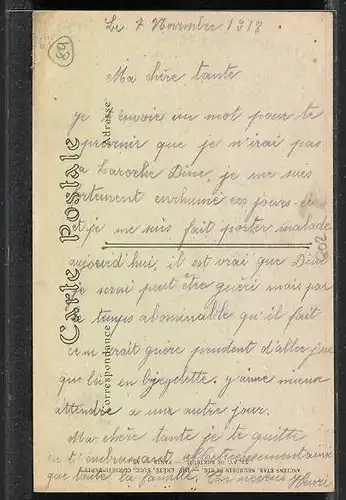 Le 7 Novembre 1918
68
Ma chère tante
je t'envoie un mot pour te
prévenir que je n'irai pas
à Laroche Dim. je me suis
fortement enrhumé ces jours-ci
et je me suis fait porter malade
aujourd'hui, il est vrai que Dim
je serai peut être guéri mais par
le temps abominable qu'il fait
ce ne serait guère prudent d'aller jus
que là en bicyclette. j'aime mieux
attendre à un autre jour.
Ma chère tante je te quitte
en t'embrassant affectueusement ainsi
que toute la famille. Ton neveu Henri
Carte Postale
Correspondance
Adresse
ANCIENS ETAB.